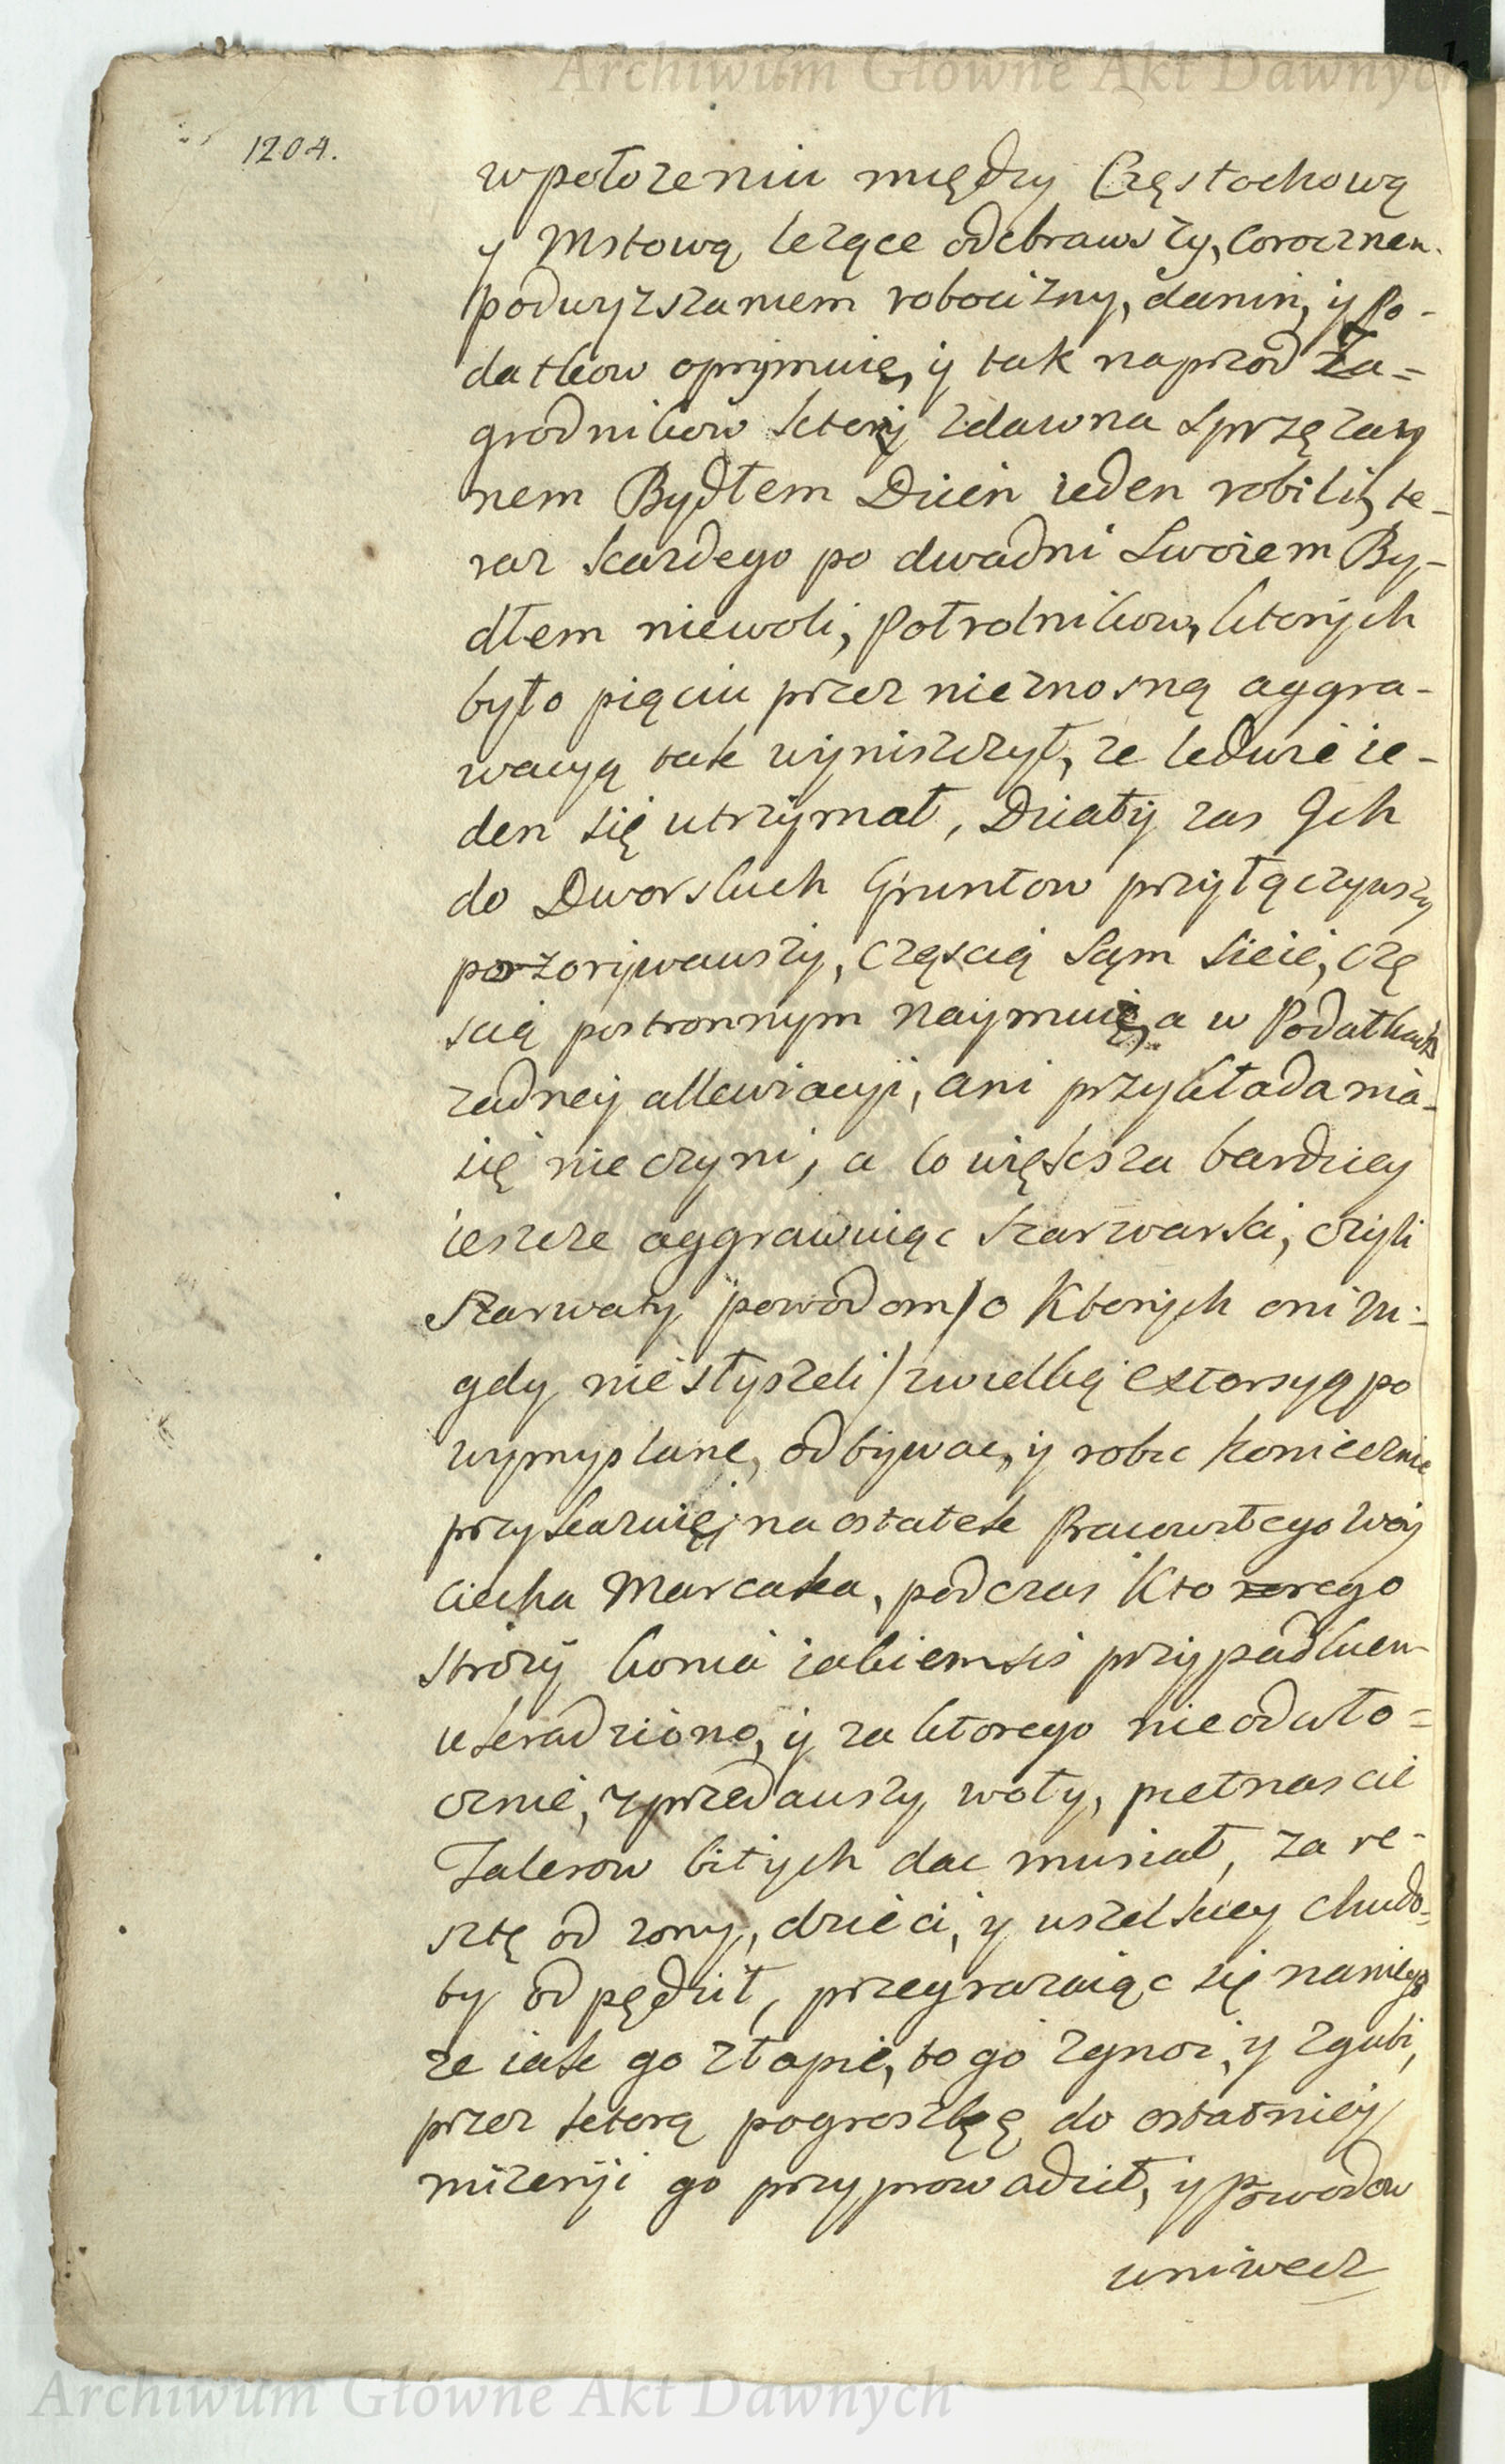 Archiwum Główne Akt Dawnych
1204.
w połozeniu między Częstochową
y Mstową lezące odebrawszy, Corocznem
podwyzszaniem robocizny, danin, y Po-
datkow oprymuię, y tak naprzod Za=
grodnikow ktorzy zdawna Sprzęzay
nem Bydłem Dzien ieden robili, te-
raz kazdego po dwadni Swoiem By-
dłem niewoli, Połrolnikow, ktorych
było pięciu przez nieznosną aggra-
wacyą tak wyniszczył, ze ledwie ie-
den się utrzymał, Działy zas Ich
do Dworskich Gruntow przyłączywszy
pozorywawszy, Częscią Sąm Sieie, czę
scią postronnym naymuię, a w Podatkach
zadney allewiacyi, ani przykładania
się nieczyni, a co większa bardziey
ieszcze aggrawuiąc Szarwarki, czyli
Szarwaty powodom / o Ktorych oni ni-
gdy nie słyszeli / zwielką Extorsyą po
wymyslane, odbywac, y robic koniecznie
przykazuię, na ostatek Pracowitego Woy
ciecha Marcaka, podczas Kto rego
strozy konia iakiemsis przypadkiem
ukradziono, y za ktorego nieodwło=
cznie, zprzedawszy woły, pietnascie
Talerow bitych dac musiał, za re-
sztę od zony, dzieci, y wszelkiey chudo=
by odpędził, przegrazaiąc się naniego
ze iak go złapie, to go zgnoi, y zgubi,
przez ktorą pogroszkę do ostatniey
mizeryi go przyprowadził, y Powodow
wniwecz
Archiwum Główne Akt Dawnych